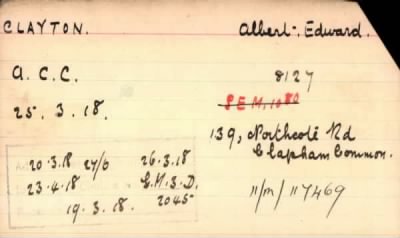 CLAYTON. Albert, Edward.
A.C.C. 8127
25. 3. 18.
139, Northcote Rd
Clapham Common.
20.3.18 27/0 26.3.18
23.4.18 G.H.3.D.
19.3.18. 2045
11/M/117469